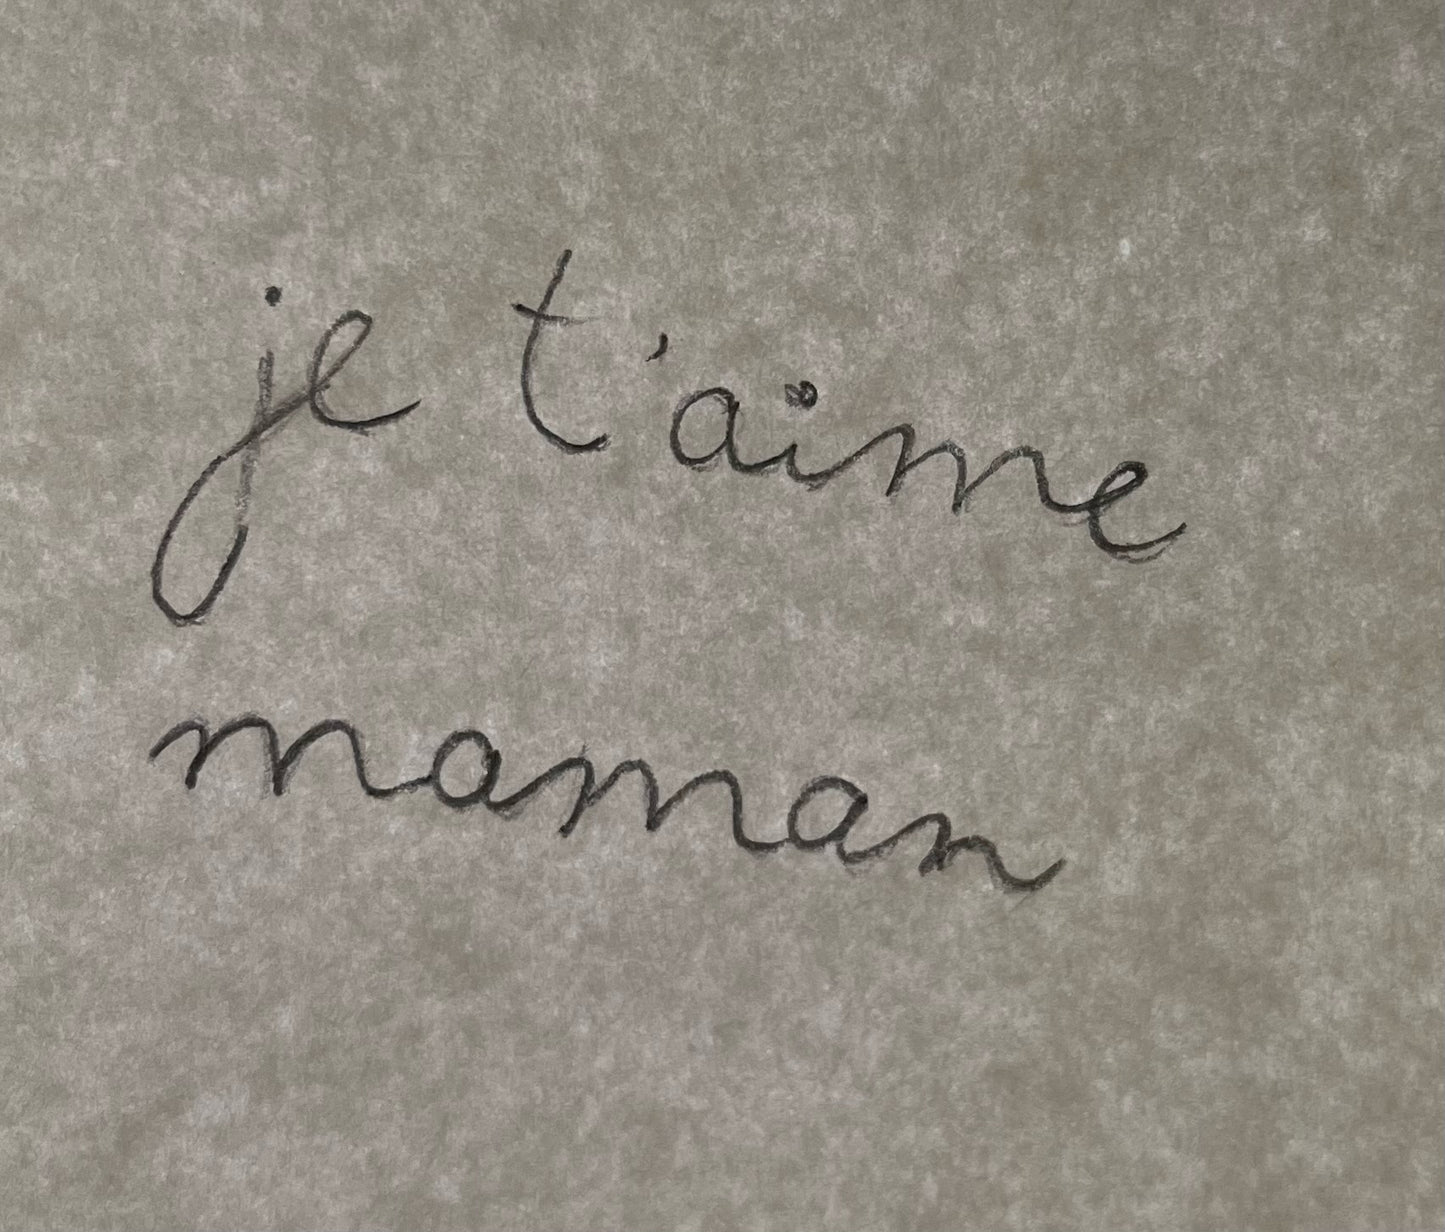 je t'aime
maman